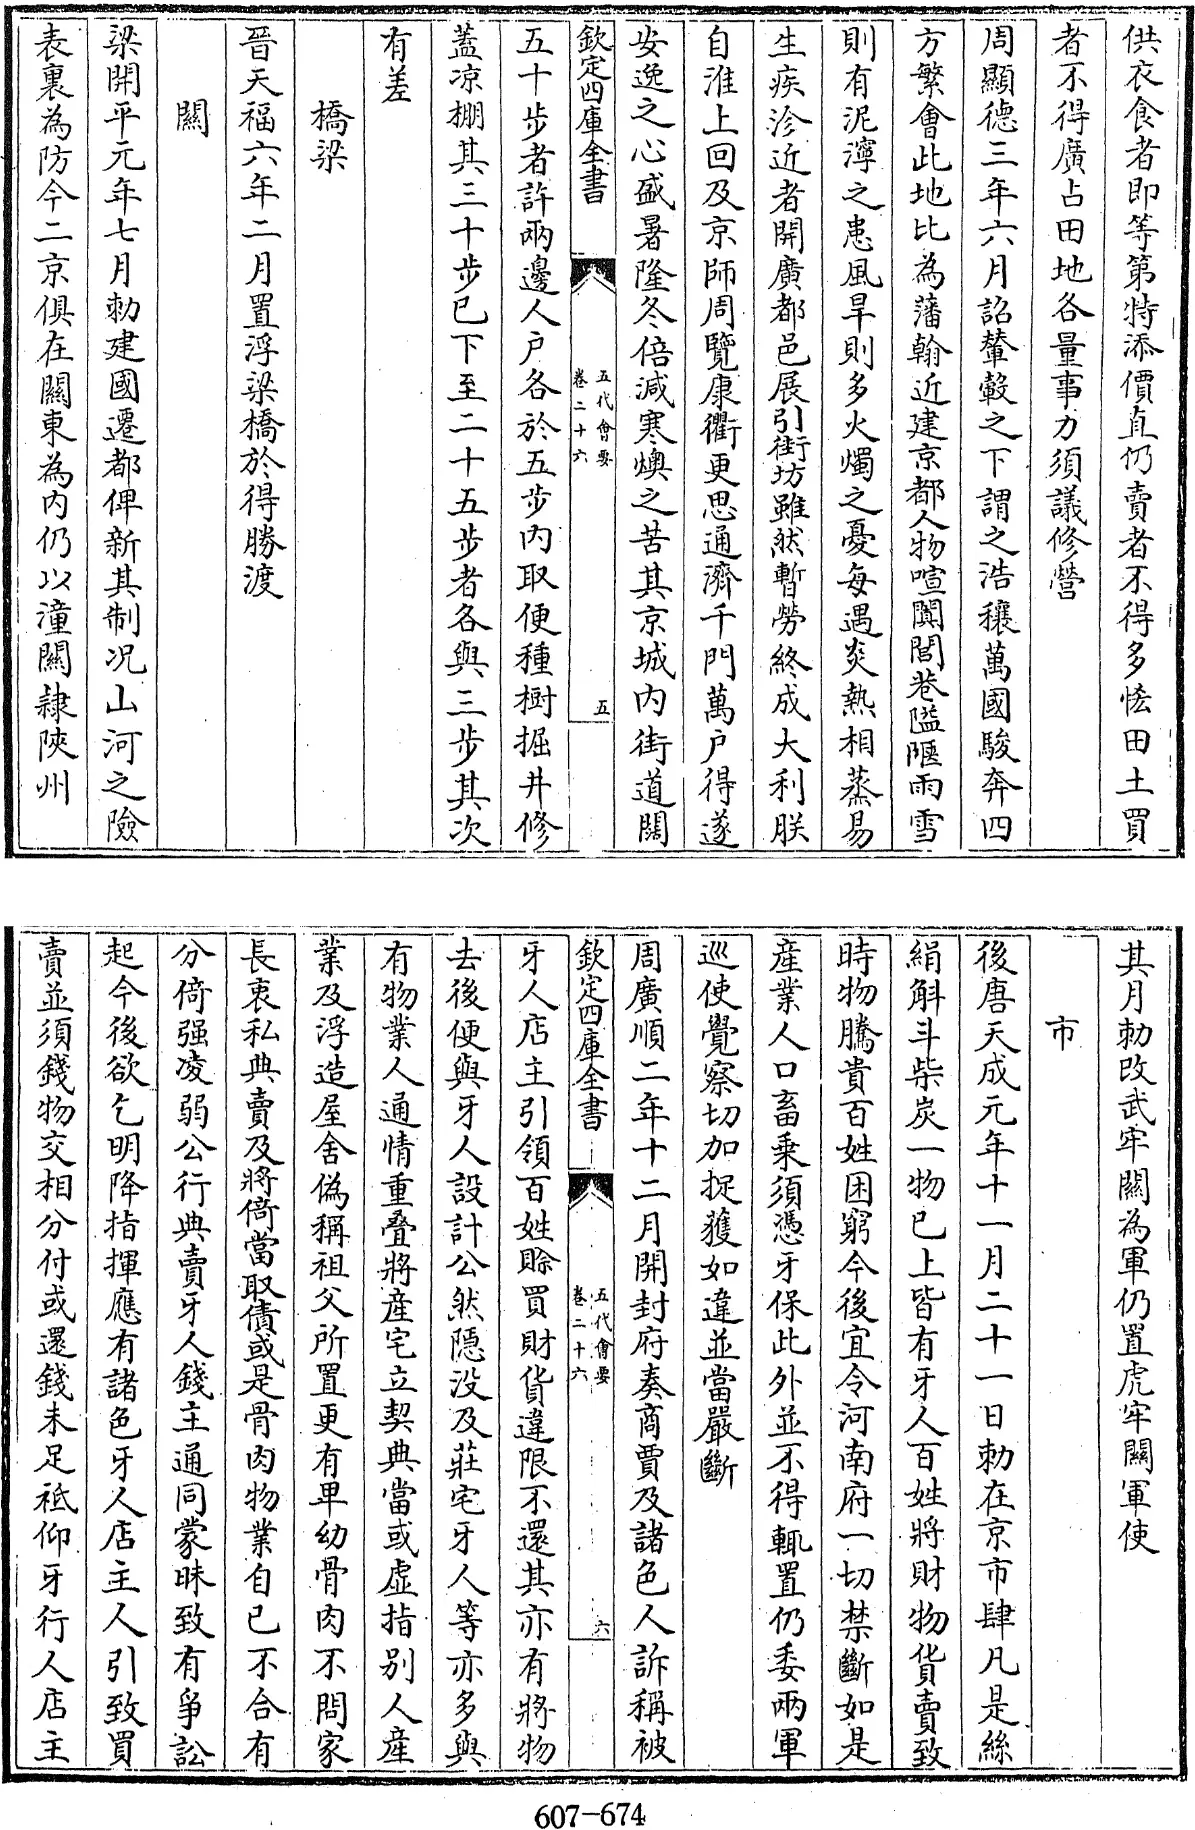 供衣食者即等第特添價直仍賣者不得多恡田土買
者不得廣占田地各量事力須議修營
周顯德三年六月詔輦轂之下謂之浩穰萬國駿奔四
方繁會此地比為藩翰近建京都人物喧闐閭巷隘陿雨雪
則有泥濘之患風旱則多火燭之憂每遇炎熱相蒸易
生疾沴近者開廣都邑展引街坊雖然暫勞終成大利朕
自淮上回及京師周覽康衢更思通濟千門萬户得遂
安逸之心盛暑隆冬倍減寒燠之苦其京城内街道闊
欽定四庫全書
五代會要
卷二十六
五
五十步者許兩邊人户各於五步内取便種樹掘井修
蓋凉棚其三十步已下至二十五步者各與三步其次
有差
橋梁
晉天福六年二月置浮梁橋於得勝渡
關
梁開平元年七月勅建國遷都俾新其制况山河之險
表裏為防今二京俱在關東為内仍以潼關隷陜州
其月勅改武牢關為軍仍置虎牢關軍使
市
後唐天成元年十一月二十一日勅在京市肆凡是絲
絹斛斗柴炭一物已上皆有牙人百姓將財物貨賣致
時物騰貴百姓困窮今後宜令河南府一切禁斷如是
產業人口畜乗須憑牙保此外並不得輒置仍委兩軍
巡使覺察切加捉獲如違並當嚴斷
周廣順二年十二月開封府奏商賈及諸色人訴稱被
欽定四庫全書
五代會要
卷二十六
六
牙人店主引領百姓賒買財貨違限不還其亦有將物
去後便與牙人設計公然隱没及莊宅牙人等亦多與
有物業人通情重疊將産宅立契典當或虛指别人産
業及浮造屋舍偽稱祖父所置更有卑幼骨肉不問家
長衷私典賣及將倚當取債或是骨肉物業自已不合有
分倚强凌弱公行典賣牙人錢主通同蒙昧致有爭訟
起今後欲乞明降指揮應有諸色牙人店主人引致買
賣並須錢物交相分付或還錢未足祗仰牙行人店主
607-674